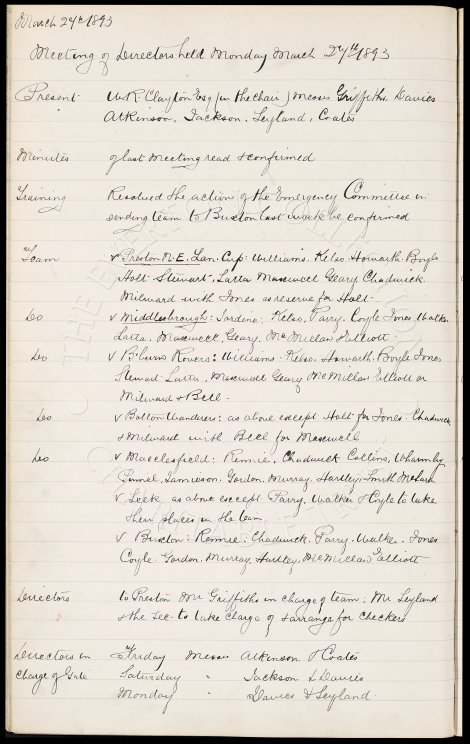 March 27th 1893
Meeting of Directors held Monday March 27th 1893
Present W. R. Clayton Esq (in the chair) Messrs Griffiths Davies
Atkinson, Jackson, Leyland, Coates
Minutes of last meeting read & confirmed
Training Resolved the action of the Emergency Committee in
sending team to Buxton last week be confirmed
Team v Preston N.E. Lan. Cup: Williams. Kelso Howarth. Boyle
Holt. Stewart. Latta Maxwell Geary Chadwick
Milward with Jones as reserve for Holt
Do v Middlesbrough: Jardine. Kelso, Parry. Coyle Jones Walker
Latta. Maxwell, Geary, McMillan Elliott
Do v B'burn Rovers: Williams. Kelso. Howarth. Boyle Jones
Stewart. Latta, Maxwell Geary McMillan Elliott or
Milward & Bell.
Do v Bolton Wanderers: as above except Holt for Jones. Chadwick
& Milward with Bell for Maxwell
Do v Macclesfield: Rennie, Chadwick Collins, Wharmby
Jamieson. Gordon. Murray, Hartley, Smith
v Leek as above except Parry, Walker & Coyle to take
their places in the team
v Buxton: Rennie: Chadwick. Parry. Walker. Jones
Coyle. Gordon. Murray, Hartley, McMillan Elliott
Directors to Preston Mr Griffiths in charge of team: Mr Leyland
& the Sec. to take charge of & arrange for checkers
Directors in Friday Messrs Atkinson & Coates
charge of Gate Saturday " Jackson & Davies
Monday " Davies & Leyland.